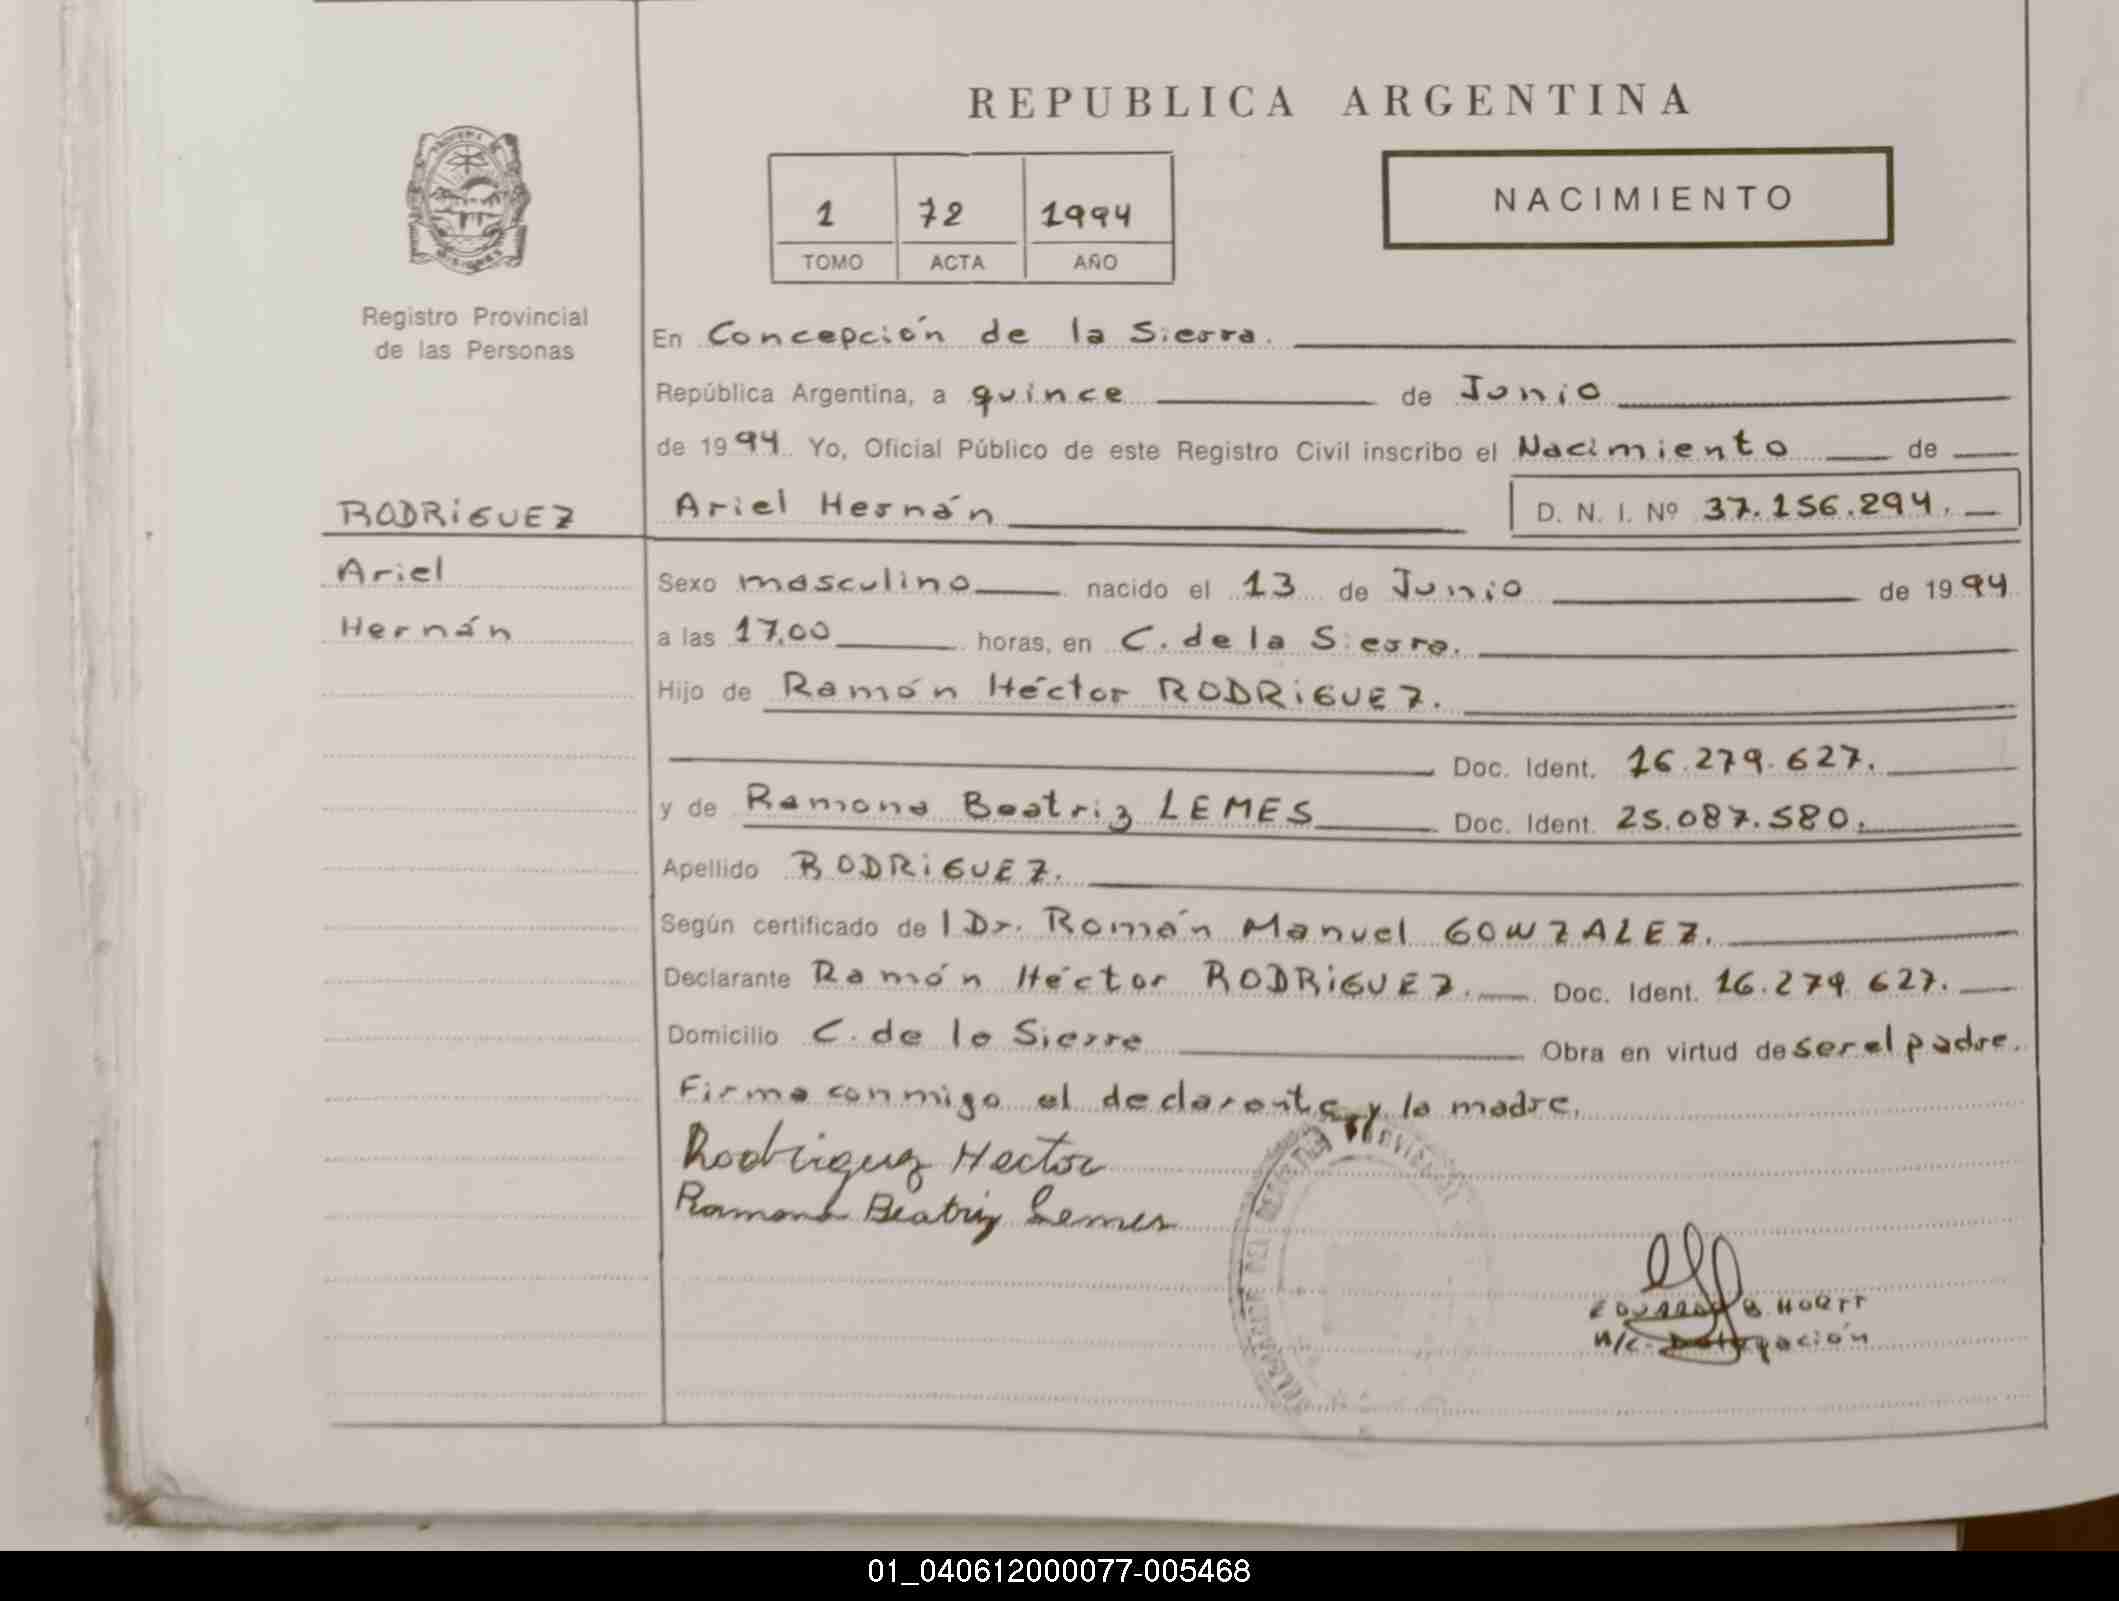 REPUBLICA ARGENTINA
NACIMIENTO
1 72 1994
TOMO ACTA AÑO
Registro Provincial
de las Personas
En Concepción de la Sierra.
República Argentina, a quince de Junio
de 1994. Yo, Oficial Público de este Registro Civil inscribo el Nacimiento de
RODRiGUEZ
Ariel Hernán D. N. I. Nº 37.156.294.
Ariel
Hernán
Sexo masculino nacido el 13 de Junio de 1994
a las 17,00 horas, en C. de la Sierra.
Hijo de Ramón Héctor RODRiGUEZ.
Doc. Ident. 16.279.627.
y de Ramona Beatriz LEMES Doc. Ident. 25.087.580.
Apellido RODRiGUEZ.
Según certificado de l Dr. Román Manuel GONZALEZ.
Declarante Ramón Héctor RODRiGUEZ. Doc. Ident. 16.279.627.
Domicilio C. de la Sierra Obra en virtud de ser el padre.
Firma conmigo el declarante y la madre.
Rodriguez Hector
Ramona Beatriz Lemes
B. HORTT
A/C. Delegación
01_040612000077-005468